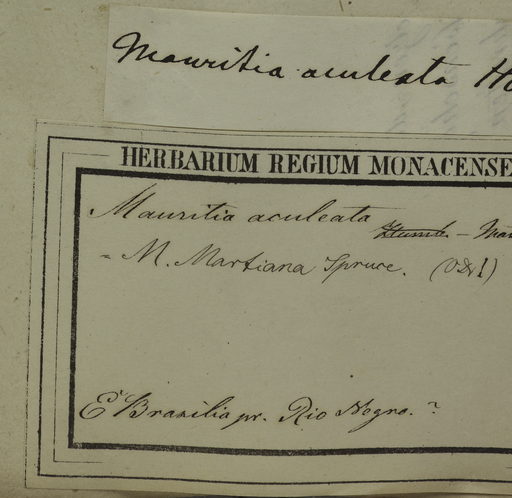 Mauritia aculeata H
HERBARIUM REGIUM MONACENSE
Mauritia aculeata Humb. - Mar
= M. Martiana Spruce.
E Brasilia pr. Rio Negro.